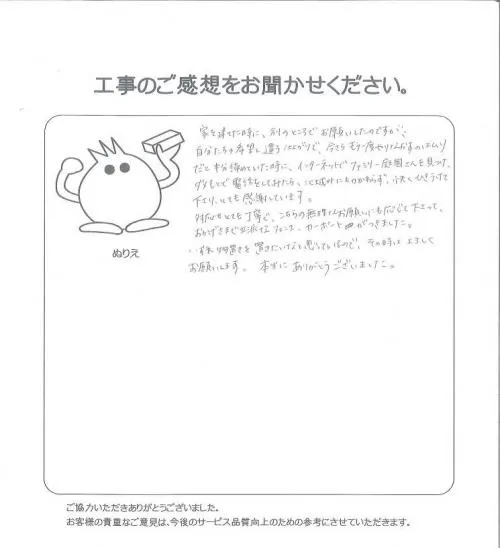 工事のご感想をお聞かせください。
家を建てた時に、別のところでお願いしたのですが、
自分たちの希望と違う仕上がりで、今さらもう一度やり
だと半分諦めていた時に、インターネットでファミリー庭園さんを見つけ、
ダメもとで電話をしてみたら、にもかかわらず、快くひきうけて
下さり、とても感謝しています。
対応もとても丁寧で、こちらの無理なお願いにも応じて下さって、
おかげさまで立派なフェンス、カーポートがつきました。
物置きを置きたいなと思っているので、その時はよろしく
お願いします。 本当にありがとうございました。
ぬりえ
ご協力いただきありがとうございました。
お客様の貴重なご意見は、今後のサービス品質向上のための参考にさせていただきます。